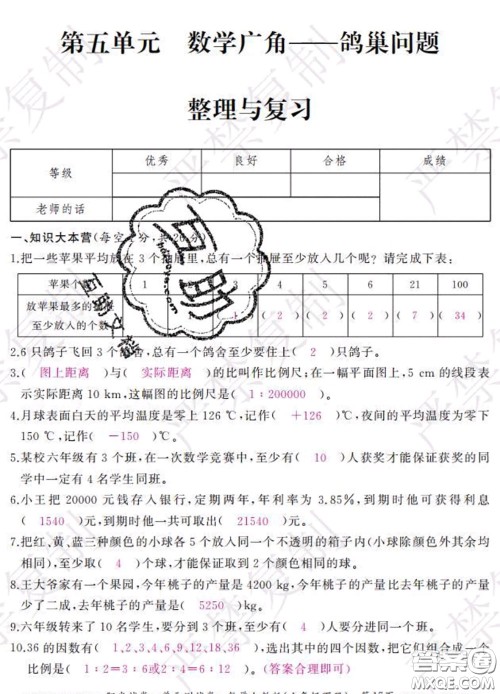 第五单元 数学广角——鸽巢问题
整理与复习
等级 优秀 良好 合格 成绩
老师的话
一、知识大本营(每空 分,共 20 分)
1.把一些苹果平均放在 3 个 屉里,总有一个 屉至少放入几个呢? 请完成下表:
苹果 1 2 3 5 6 21 100
放苹果最多的
至少放入的个数 ( 2 ) ( 2 ) ( 7 ) ( 34 )
2.6 只鸽子飞回 3 个 舍,总有一个鸽舍至少要住上( 2 )只鸽子。
3.( 图上距离 )与( 实际距离 )的比叫作比例尺;在一幅平面图上,5 cm 的线段表
示实际距离 10 km,这幅图的比例尺是( 1∶200000 )。
4.月球表面白天的平均温度是零上 126 ℃,记作( +126 )℃,夜间的平均温度为零下
150 ℃,记作( -150 )℃。
5.某校六年级有 3 个班,在一次数学竞赛中,至少有( 10 )人获奖才能保证获奖的同
学中一定有 4 名学生同班。
6.小王把 20000 元钱存入银行,定期两年,年利率为 3.85%,到期他可以获得利息
( 1540 )元,到期时他一共可取出( 21540 )元。
7.把红、黄、蓝三种颜色的小球各 5 个放入同一个不透明的箱子内(小球除颜色外其余均
相同),至少取( 4 )个球,才能保证取到 2 个颜色相同的球。
8.王大爷家有一个果园,今年桃子的产量是 4200 kg,今年桃子的产量比去年桃子的产量
少了二成,去年桃子的产量是( 5250 )kg。
9.六年级转来了 10 名学生,要分到 3 个班,至少有( 4 )名学生要分进同一个班。
10.36 的因数有( 1,2,3,4,6,9,12,18,36 ),选出其中的四个因数,把它们组成一个
比例是( 1∶2=3∶6或2∶4=6∶12 )。(答案合理即可)
严禁复制
互助
互助文档
MXQE.COM